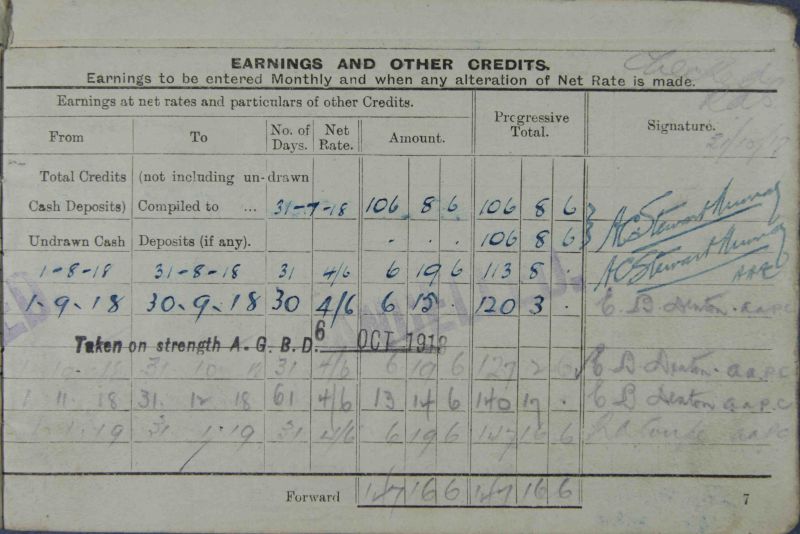 EARNINGS AND OTHER CREDITS.
Earnings to be entered Monthly and when any alteration of Net Rate is made.
Earnings at net rates and particulars of other Credits.
Progressive Total.
Signature.
From To No. of Days. Net Rate. Amount.
21/10/
Total Credits (not including un-drawn
Cash Deposits) Compiled to ... 31-7-18 106 8 6 106 8 6 A C Stewart Murray
Undrawn Cash Deposits (if any). . . . 106 8 6
1-8-18 31-8-18 31 4/6 6 19 6 113 8 . A C Stewart Murray
1-9-18 30-9-18 30 4/6 6 15 . 120 3 . E. B. Denton. A.A.P.C
Taken on strength A.G.B.D. 6 OCT 1918
10 18 31 10 18 31 4/6 6 19 6 127 2 6 E B Denton. A.A.P.C
1 11 18 31 12 18 61 4/6 13 14 6 140 17 . E B Denton A.A.P.C
1 1 19 31 1 19 31 4/6 6 19 6 147 16 6 A.A.P.C
Forward 147 16 6 147 16 6
7